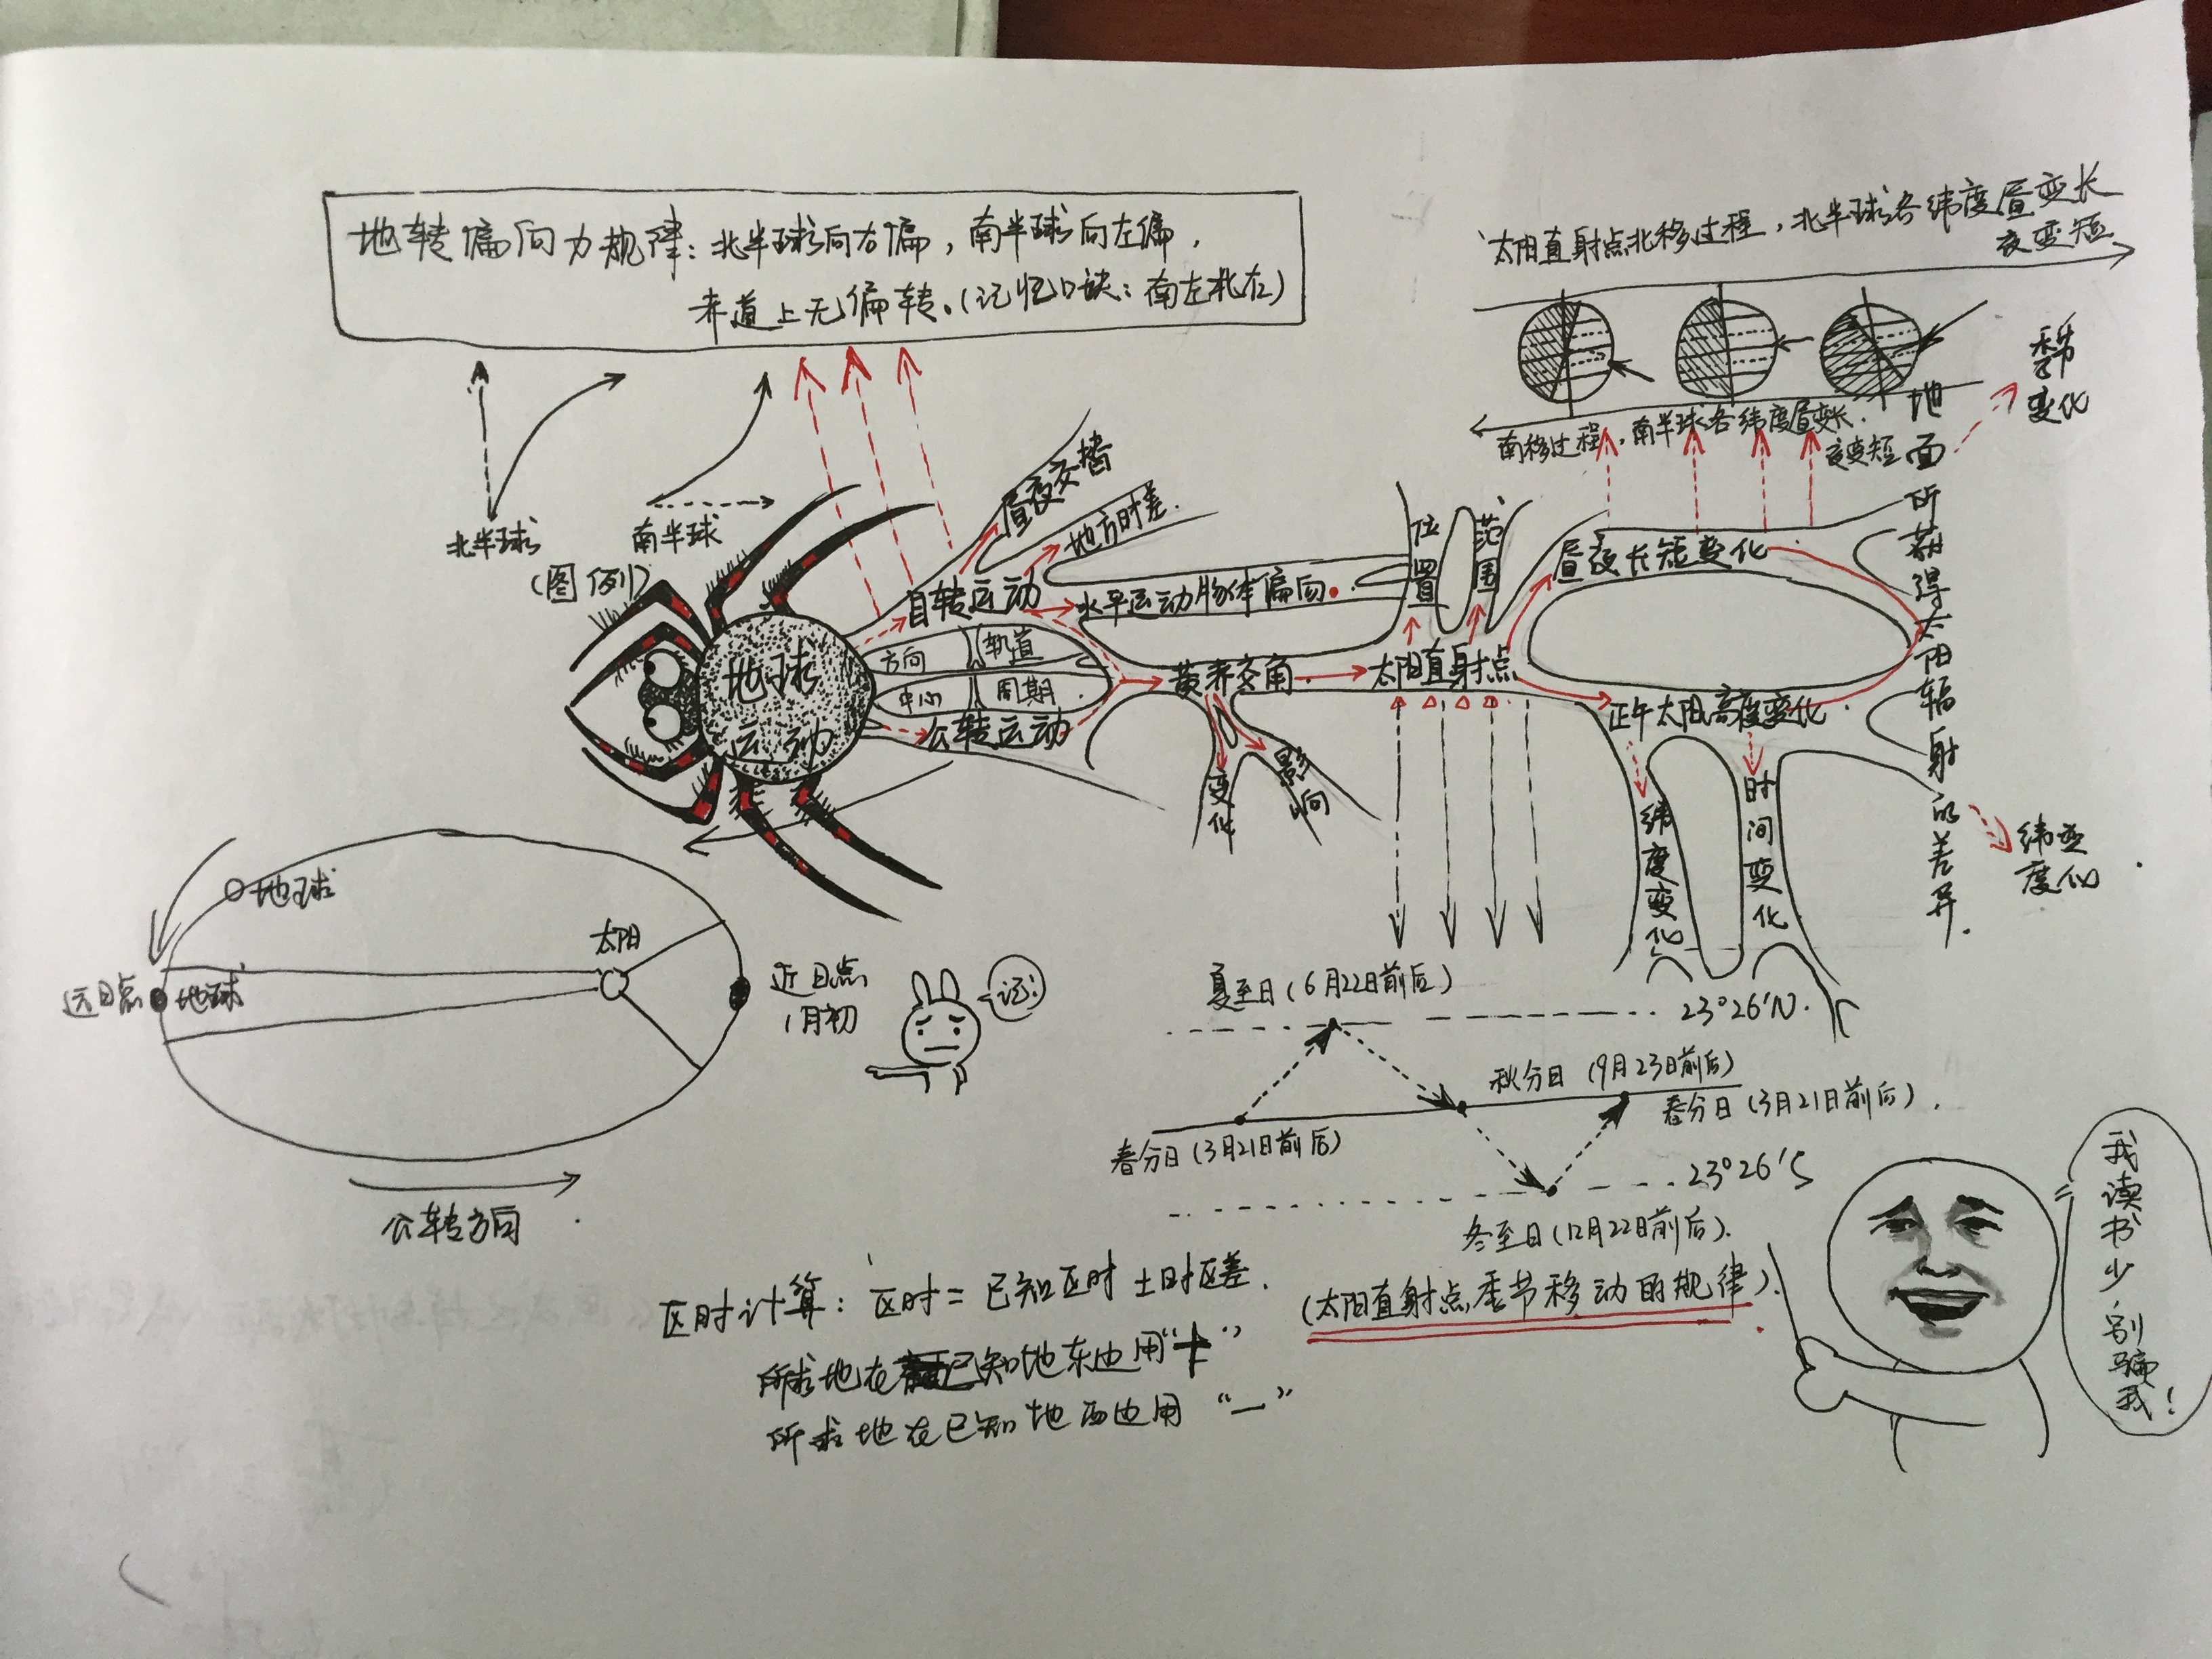 地转偏向力规律：北半球向右偏，南半球向左偏，
赤道上无偏转。（记忆口诀：南左北右）
太阳直射点北移过程，北半球各纬度昼变长
夜变短
南移过程，南半球各纬度昼变长
夜变短
季节变化
北半球
南半球
（图例）
昼夜交替
地方时差.
自转运动
水平运动物体偏向.
方向
轨道
中心
周期.
公转运动
地球
运动
黄赤交角.
变化
影响
太阳直射点
位置
范围
昼夜长短变化
正午太阳高度变化.
纬度变化
时间变化
地面所获得太阳辐射的差异.
纬度变化
地球
太阳
远日点
地球
近日点
1月初
公转方向
记:
夏至日（6月22日前后）
23°26′N.
秋分日（9月23日前后）
春分日（3月21日前后）.
春分日（3月21日前后）
23°26′S
冬至日（12月22日前后）.
（太阳直射点季节移动的规律）.
区时计算：区时＝已知区时±时区差.
所求地在已知地东边用“＋”
所求地在已知地西边用“－”
我读书少，别骗我！